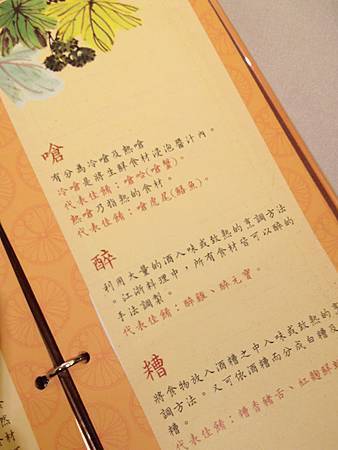 嗆
有分為冷嗆及熱嗆
冷嗆是將生鮮食材浸泡醬汁內。
代表佳餚：嗆蛤(嗆蟹)。
熱嗆乃指熱的食材。
代表佳餚：嗆虎尾(鱔魚)。
醉
利用大量的酒入味或致熟的烹調方法
。江浙料理中，所有食材皆可以醉的
手法調製。
代表佳餚：醉雞、醉元寶。
糟
將食物放入酒糟之中入味或致熟的烹
調方法。又可依酒糟而分成白糟及
糟。
代表佳餚：糟香豬舌、紅麴酥
然
食材